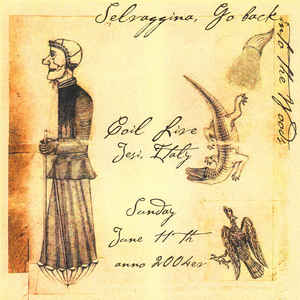 Selvaggina, Go back
into the Woods
Coil Live
Jesi, Italy
Sunday
June 11th
anno 2004es